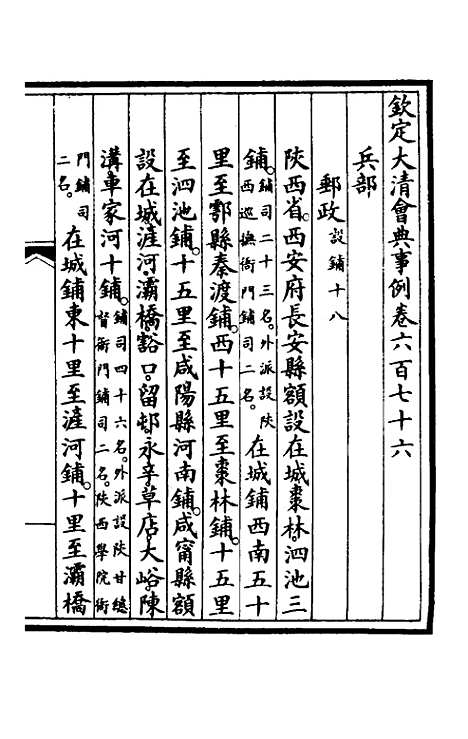 欽定大清會典事例卷六百七十六
兵部
郵政設鋪十八
陝西省。西安府長安縣額設在城棗林。泗池三
鋪。鋪司二十三名。外派設陝西巡撫衙門鋪司二名。在城鋪西南五十
里至鄠縣秦渡鋪。西十五里至棗林鋪。十五里
至泗池鋪。十五里至咸陽縣河南鋪。咸甯縣額
設在城。滻河。灞橋。豁口。留邨。永辛。草店。大峪。陳
溝。車家河十鋪。鋪司四十六名。外派設陝甘總督衙門鋪司二名。陝西學院衙
門鋪司二名。在城鋪東十里至滻河鋪。十里至灞橋